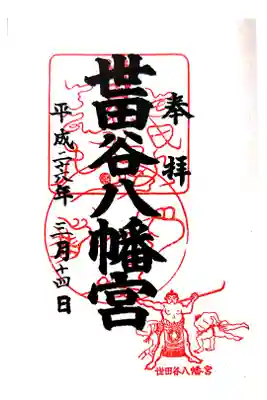 奉拝
世田谷八幡宮
平成二十八年 三月十四日
世田谷八幡宮